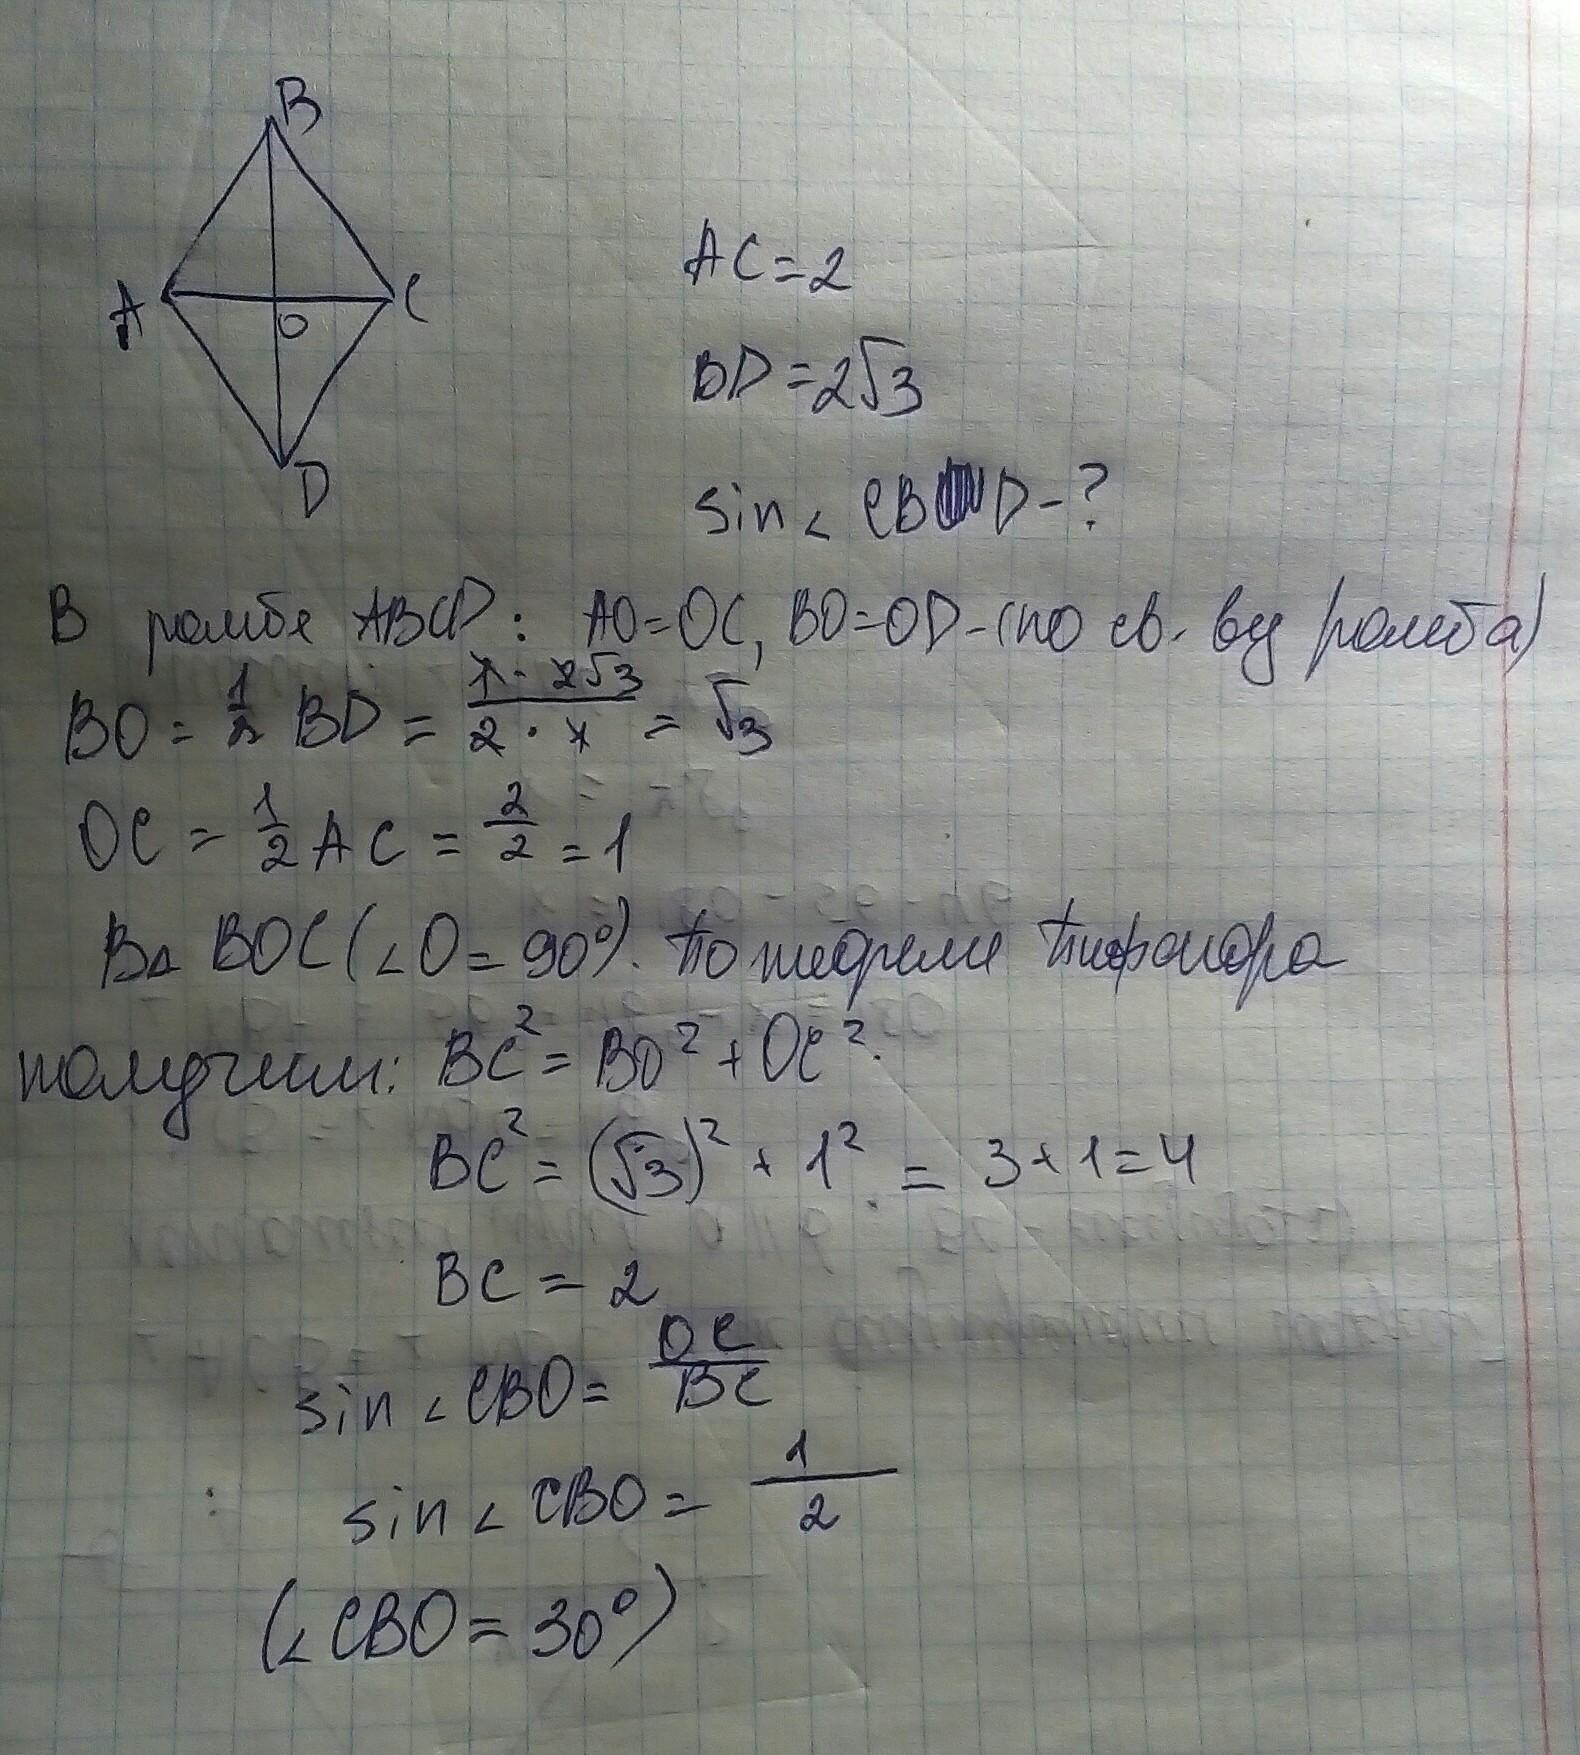 B
A
C
O
D
AC = 2
BD = 2√3
sin ∠ CBD - ?
В ромбе ABCD: AO=OC, BO=OD - (по св-ву ромба)
BO = 1/2 BD = 1·2√3 / 2·1 = √3
OC = 1/2 AC = 2/2 = 1
В △ BOC (∠O = 90°). По теореме Пифагора
получим: BC² = BO² + OC².
BC² = (√3)² + 1² = 3+1=4
BC = 2
sin ∠ CBO = OC/BC
sin ∠ CBO = 1/2
(∠CBO = 30°)